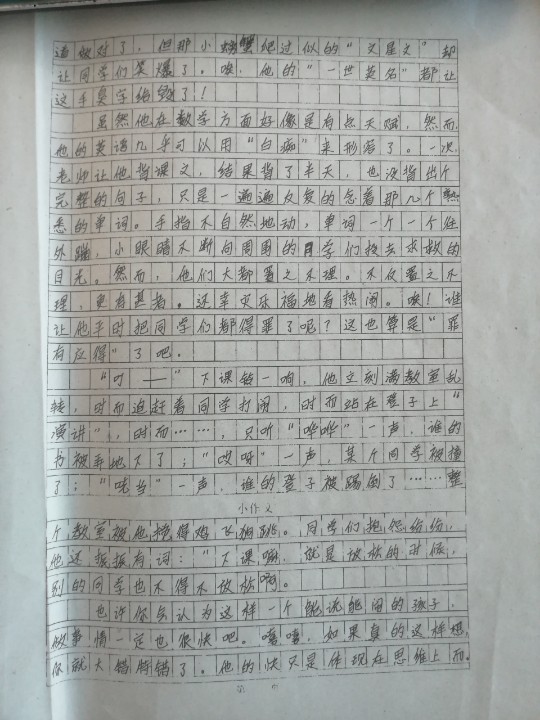 道做对了，但那小螃蟹爬过似的“天星文”却
让同学们笑爆了。唉，他的“一世英名”都让
这手臭字给毁了！
虽然他在数学方面好像是有点天赋，然而
他的英语几乎可以用“白痴”来形容了。一次
老师让他背课文，结果背了半天，也没背出个
完整的句子，只是一遍遍反复的念着那几个熟
悉的单词。手指不自然地动，单词一个一个往
外蹦，小眼睛不断向周围的同学们投去求救的
目光。然而，他们大都置之不理。不仅置之不
理，更有甚者。还幸灾乐祸地看热闹。唉！谁
让他平时把同学们都得罪了呢？这也算是“罪
有应得”了吧。
“叮——”下课铃一响，他立刻满教室乱
转，时而追赶着同学打闹，时而站在凳子上“
演讲”，时而……，只听“哗哗”一声，谁的
书被弄地下了；“哎呀”一声，某个同学被撞
了；“咣当”一声，谁的凳子被踢倒了……整
小作文
个教室被他搅得鸡飞狗跳。同学们抱怨纷纷，
他还振振有词：“下课嘛，就是放松的时候，
别的同学也不得不放松啊。
也许你会认为这样一个能说能闹的孩子，
做事情一定也很快吧。嘻嘻，如果真的这样想，
你就大错特错了。他的快只是体现在思维上而
第 页